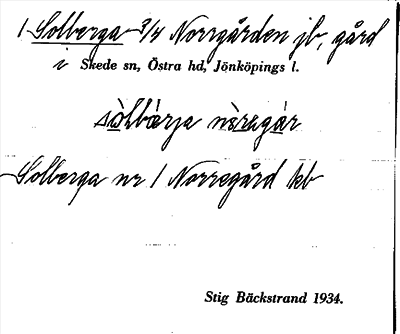 1 Solberga 3/4 Norrgården jb, gård
i Skede sn, Östra hd, Jönköpings l.
sòlbærja nòregår
Solberga nr 1 Norregård kb
Stig Bäckstrand 1934.